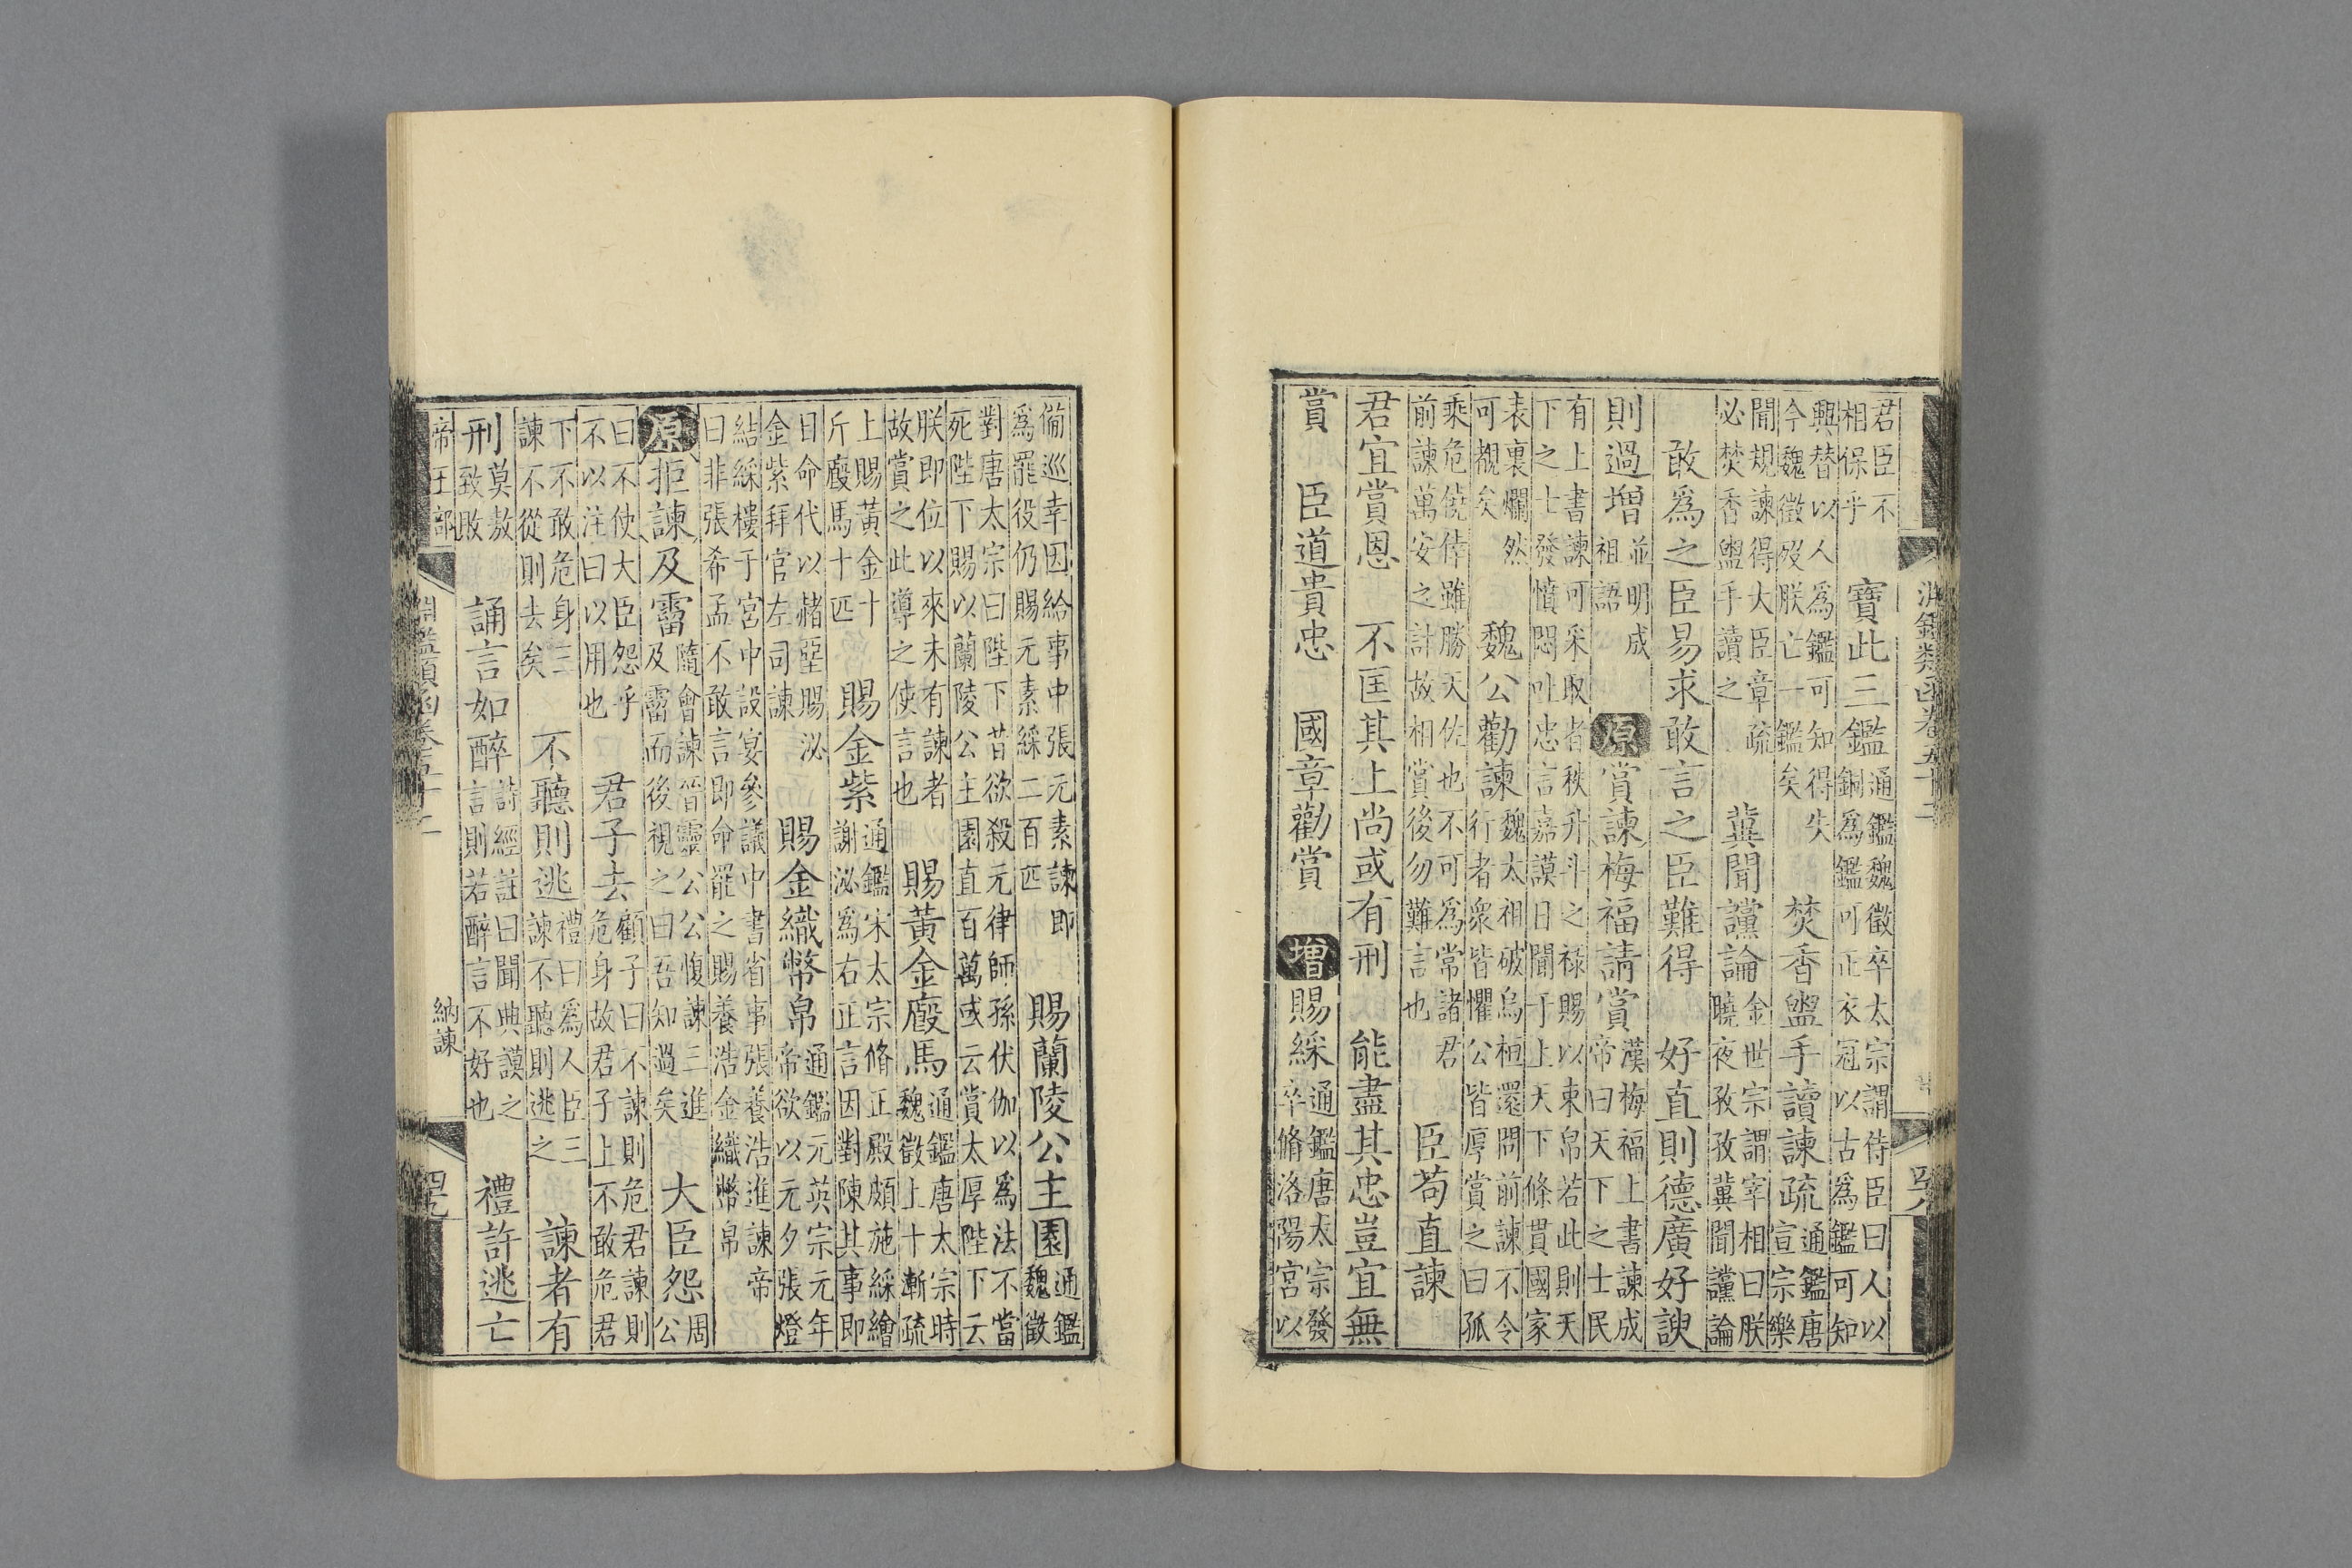 淵鑑類函卷五十二
君臣不相保乎 寶此三鑑通鑑魏徵卒太宗謂侍臣曰人以銅爲鑑可正衣冠以古爲鑑可知
興替以人爲鑑可知得失今魏徵歿朕亡一鑑矣 焚香盥手讀諫疏通鑑唐宣宗樂
聞規諫得大臣章疏必焚香盥手讀之 冀聞讜論金世宗謂宰相曰朕曉夜孜孜冀聞讜論
敢爲之臣易求敢言之臣難得 好直則德廣好諛
則過增並明成祖語 原賞諫梅福請賞漢梅福上書諫成帝曰天下之士民
有上書諫可采取者秩升斗之祿賜以束帛若此則天下之士發憤悶吐忠言嘉謨日聞于上天下條貫國家
表裏爛然可覩矣 魏公勸諫魏太祖破烏桓還問前諫不令行者衆皆懼公皆厚賞之曰孤
乘危僥倖雖勝天佐也不可爲常諸君前諫萬安之計故相賞後勿難言也 臣苟直諫
君宜賞恩 不匡其上尚或有刑 能盡其忠豈宜無
賞 臣道貴忠 國章勸賞 增賜綵通鑑唐太宗發卒脩洛陽宮以
備巡幸因給事中張元素諫即爲罷役仍賜元素綵二百匹 賜蘭陵公主園通鑑魏徵
對唐太宗曰陛下昔欲殺元律師孫伏伽以爲法不當死陛下賜以蘭陵公主園直百萬或云賞太厚陛下云
朕即位以來未有諫者故賞之此導之使言也 賜黃金廄馬通鑑唐太宗時魏徵上十漸疏
上賜黃金十斤廄馬十匹 賜金紫通鑑宋太宗脩正殿頗施綵繪謝泌爲右正言因對陳其事即
日命代以赭堊賜泌金紫拜官左司諫 賜金織幣帛通鑑元英宗元年帝欲以元夕張燈
結綵樓于宮中設宴參議中書省事張養浩進諫帝曰非張希孟不敢言即命罷之賜養浩金織幣帛
原拒諫及霤隨會諫晉靈公公愎諫三進及霤而後視之曰吾知過矣 大臣怨周公
曰不使大臣怨乎不以注曰以用也 君子去顧子曰不諫則危君諫則危身故君子上不敢危君
下不敢危身三諫不從則去矣 不聽則逃禮曰爲人臣三諫不聽則逃之 諫者有
刑莫敖致敗 誦言如醉詩經註曰聞典謨之言則若醉言不好也 禮許逃亡
帝王部 淵鑑類函卷五十二 納諫